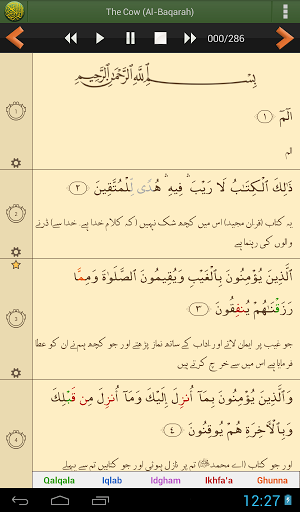 The Cow (Al-Baqarah)
000/286
بِسْمِ ٱللَّهِ ٱلرَّحْمَٰنِ ٱلرَّحِيمِ
1
الٓمٓ ﴿١﴾
الم
2
ذَٰلِكَ ٱلْكِتَٰبُ لَا رَيْبَ ۛ فِيهِ ۛ هُدًى لِّلْمُتَّقِينَ ﴿٢﴾
یہ کتاب (قرآن مجید) اس میں کچھ شک نہیں (کہ کلام خدا ہے۔ خدا سے) ڈرنے
والوں کی رہنما ہے
3
ٱلَّذِينَ يُؤْمِنُونَ بِٱلْغَيْبِ وَيُقِيمُونَ ٱلصَّلَوٰةَ وَمِمَّا
رَزَقْنَٰهُمْ يُنفِقُونَ ﴿٣﴾
جو غیب پر ایمان لاتے اور آداب کے ساتھ نماز پڑھتے اور جو کچھ ہم نے ان کو عطا
فرمایا ہے اس میں سے خرچ کرتے ہیں
4
وَٱلَّذِينَ يُؤْمِنُونَ بِمَآ أُنزِلَ إِلَيْكَ وَمَآ أُنزِلَ مِن قَبْلِكَ
وَبِٱلْءَاخِرَةِ هُمْ يُوقِنُونَ ﴿٤﴾
اور جو کتاب (اے محمدﷺ) تم پر نازل ہوئی اور جو کتابیں تم سے پہلے
Qalqala Iqlab Idgham Ikhfa'a Ghunna
12:27